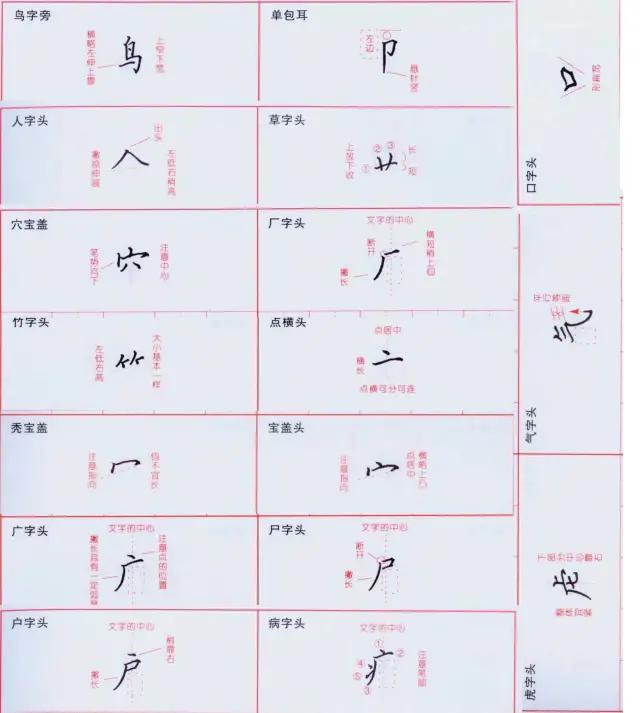 鸟字旁
横略左伸上靠
鸟
上窄下宽
单包耳
左边
卩
悬针竖
人字头
撇捺伸展
出头
人
左低右稍高
草字头
上放下收
①
②
③
艹
长
短
穴宝盖
笔势向下
穴
注意中心
厂字头
文字的中心
断开
横短稍上
撇长
厂
竹字头
左低右高
竹
大小基本一样
点横头
点居中
横长
亠
点横可分可连
秃宝盖
注意指向
冖
宜长
宝盖头
注意指向
宀
点居中
横略上
广字头
文字的中心
撇长且有一定
广
注意点的位置
尸字头
文字的中心
断开
撇长
尸
户字头
文字的中心
稍靠右
撇长
户
病字头
文字的中心
①
②
④
⑤
③
疒
注意笔顺
口字头
口
形
宽
气字头
平行
气
虎字头
下部分中心靠右
虍
整体宜